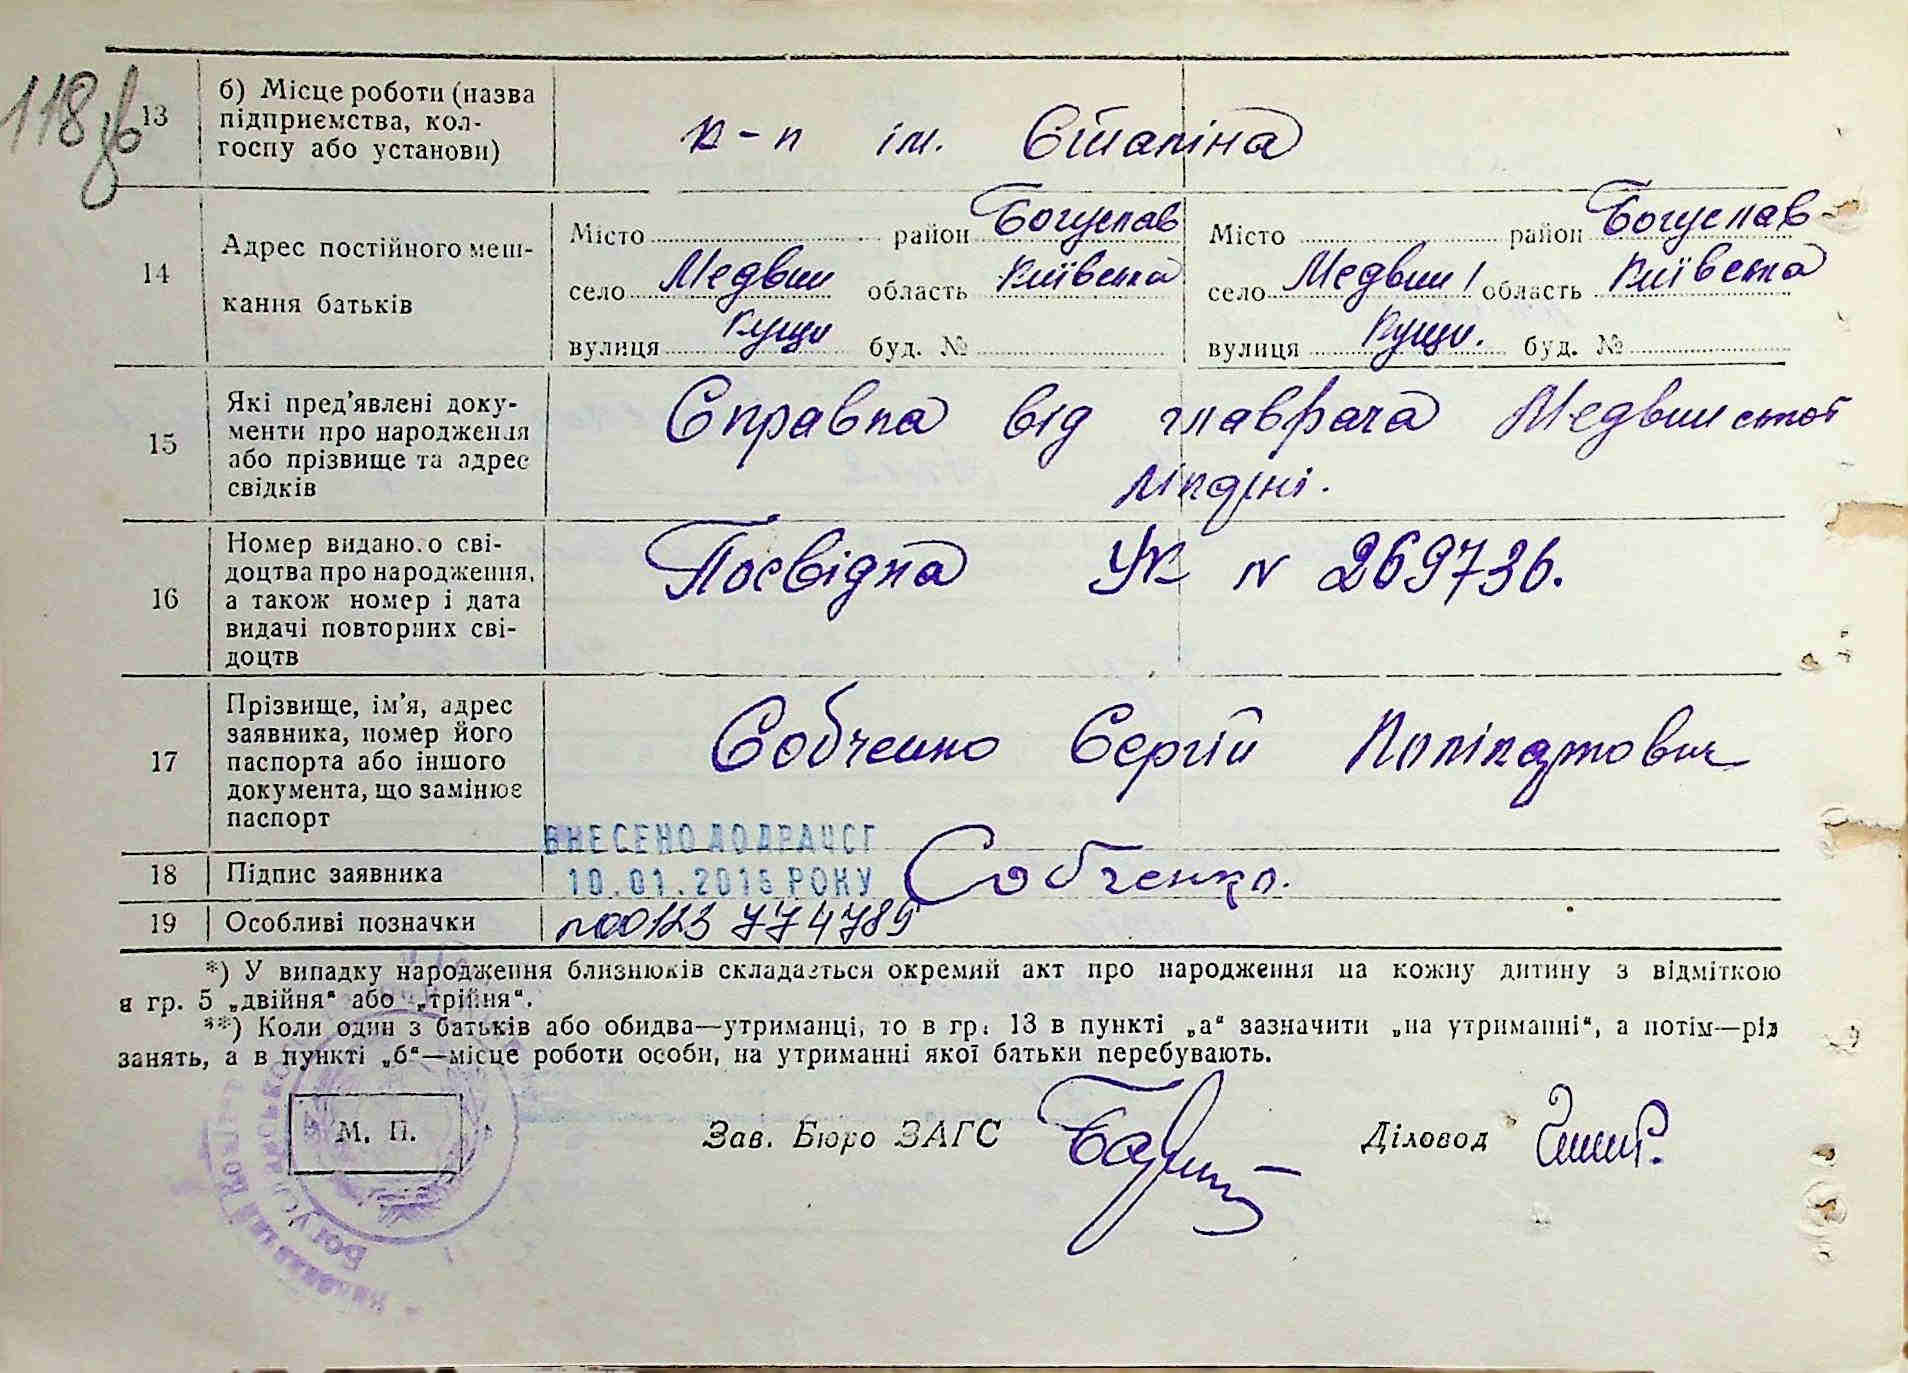 118 зв
13
б) Місце роботи (назва
підприємства, кол-
госпу або установи)
к-п ім. Сталіна
14
Адрес постійного меш-
кання батьків
Місто район Богуслав
село Медвин область Київська
вулиця Кущі буд. №
Місто район Богуслав
село Медвин область Київська
вулиця Кущі. буд. №
15
Які пред'явлені доку-
менти про народження
або прізвище та адрес
свідків
Справка від главрача Медвинської
лікарні.
16
Номер виданого сві-
доцтва про народження,
а також номер і дата
видачі повторних сві-
доцтв
Посвідка УК N 269736.
17
Прізвище, ім'я, адрес
заявника, номер його
паспорта або іншого
документа, що замінює
паспорт
Собченко Сергій Полікарпович
ВНЕСЕНО ДО ДРАЦСГ
10.01.2015 РОКУ
18
Підпис заявника
Собченко.
19
Особливі позначки
n00123774789
*) У випадку народження близнюків складається окремий акт про народження на кожну дитину з відміткою
в гр. 5 „двійня“ або „трійня“.
**) Коли один з батьків або обидва—утриманці, то в гр. 13 в пункті „а“ зазначити „на утриманні“, а потім—рід
занять, а в пункті „б“—місце роботи особи, на утриманні якої батьки перебувають.
М. П.
Зав. Бюро ЗАГС
Діловод